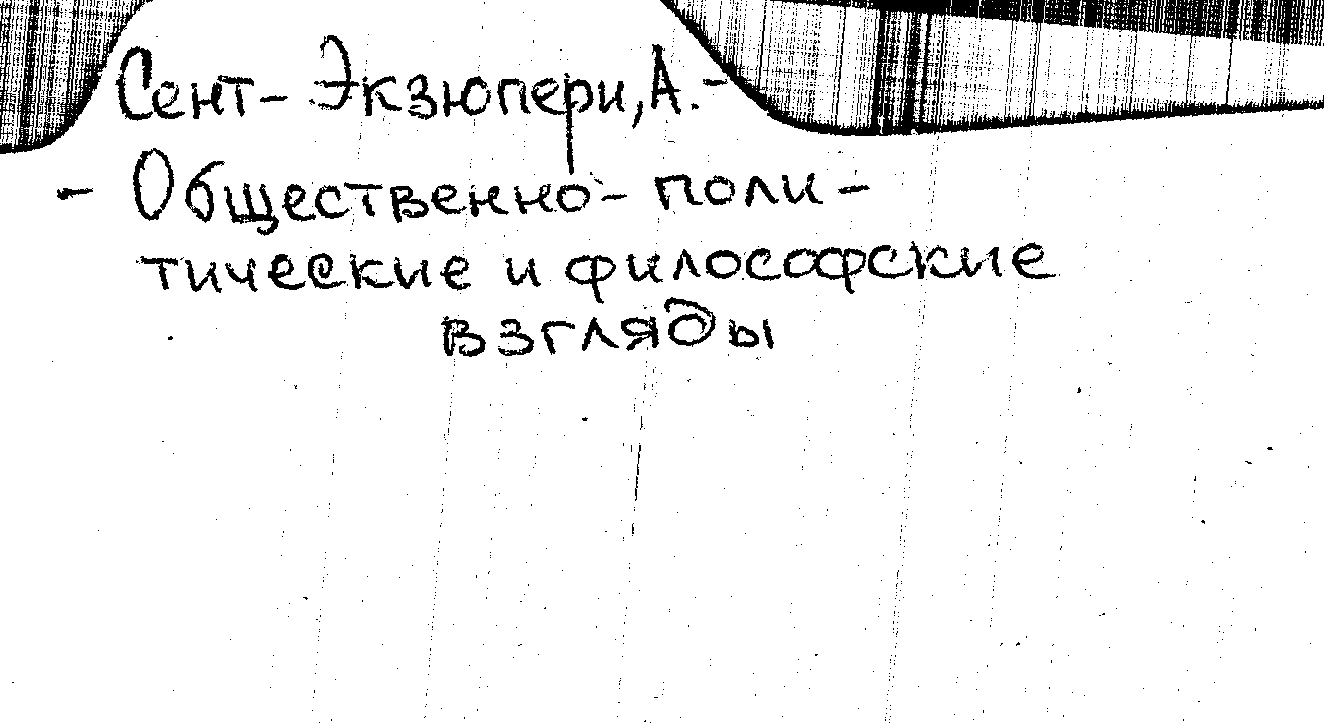 Сент-Экзюпери, А. -
- Общественно-поли-
тические и философские
взгляды